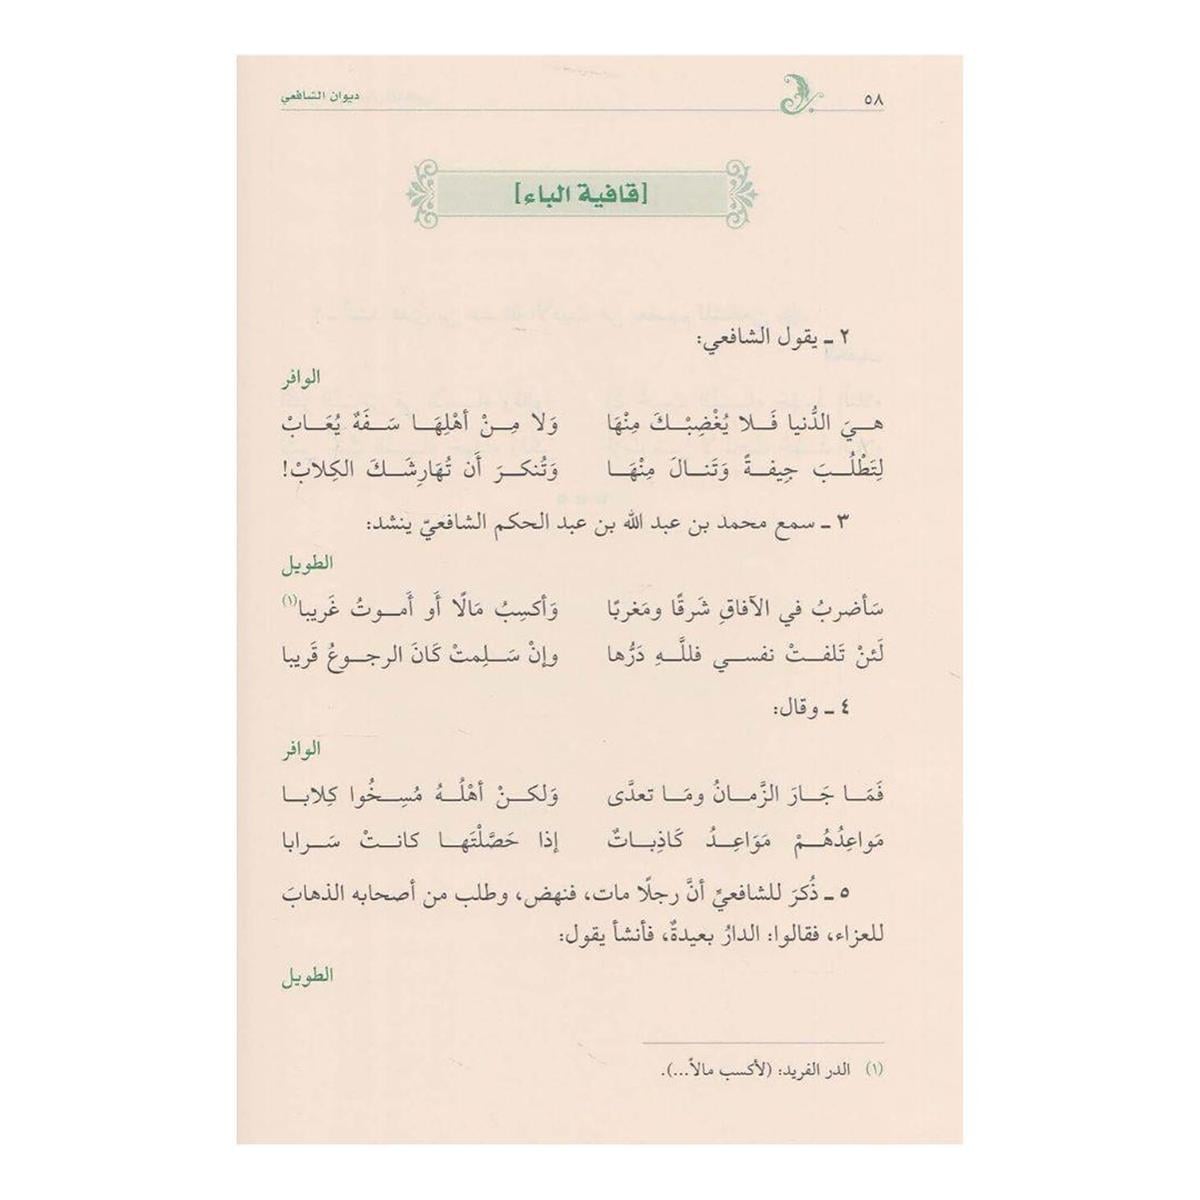 ٥٨ ديوان الشافعي
[قافية الباء]
٢ ـ يقول الشافعي:
الوافر
هيَ الدُّنيا فَلا يُغْضِبْكَ مِنْهَا وَلا مِنْ أهْلِهَا سَفَهٌ يُعَابْ
لِتَطْلُبَ جِيفَةً وَتَنالَ مِنْهَا وَتُنكرَ أَن تُهَارِشَكَ الكِلابْ!
٣ ـ سمع محمد بن عبد الله بن عبد الحكم الشافعيّ ينشد:
الطويل
سَأضربُ في الآفاقِ شَرقًا ومَغربًا وَأكسِبُ مَالًا أو أَموتُ غَريبا(١)
لَئنْ تَلفتْ نفسي فللَّهِ دَرُّها وإنْ سَلِمتْ كَانَ الرجوعُ قَريبا
٤ ـ وقال:
الوافر
فَمَا جَارَ الزَّمانُ ومَا تعدَّى وَلكنْ أهْلُهُ مُسِخُوا كِلابا
مَواعِدُهُمْ مَوَاعِدُ كَاذِباتٌ إذا حَصَّلْتَها كانتْ سَرابا
٥ ـ ذُكرَ للشافعيِّ أنَّ رجلًا مات، فنهض، وطلب من أصحابه الذهابَ
للعزاء، فقالوا: الدارُ بعيدةٌ، فأنشأ يقول:
الطويل
(١) الدر الفريد: (لأكسب مالاً...).